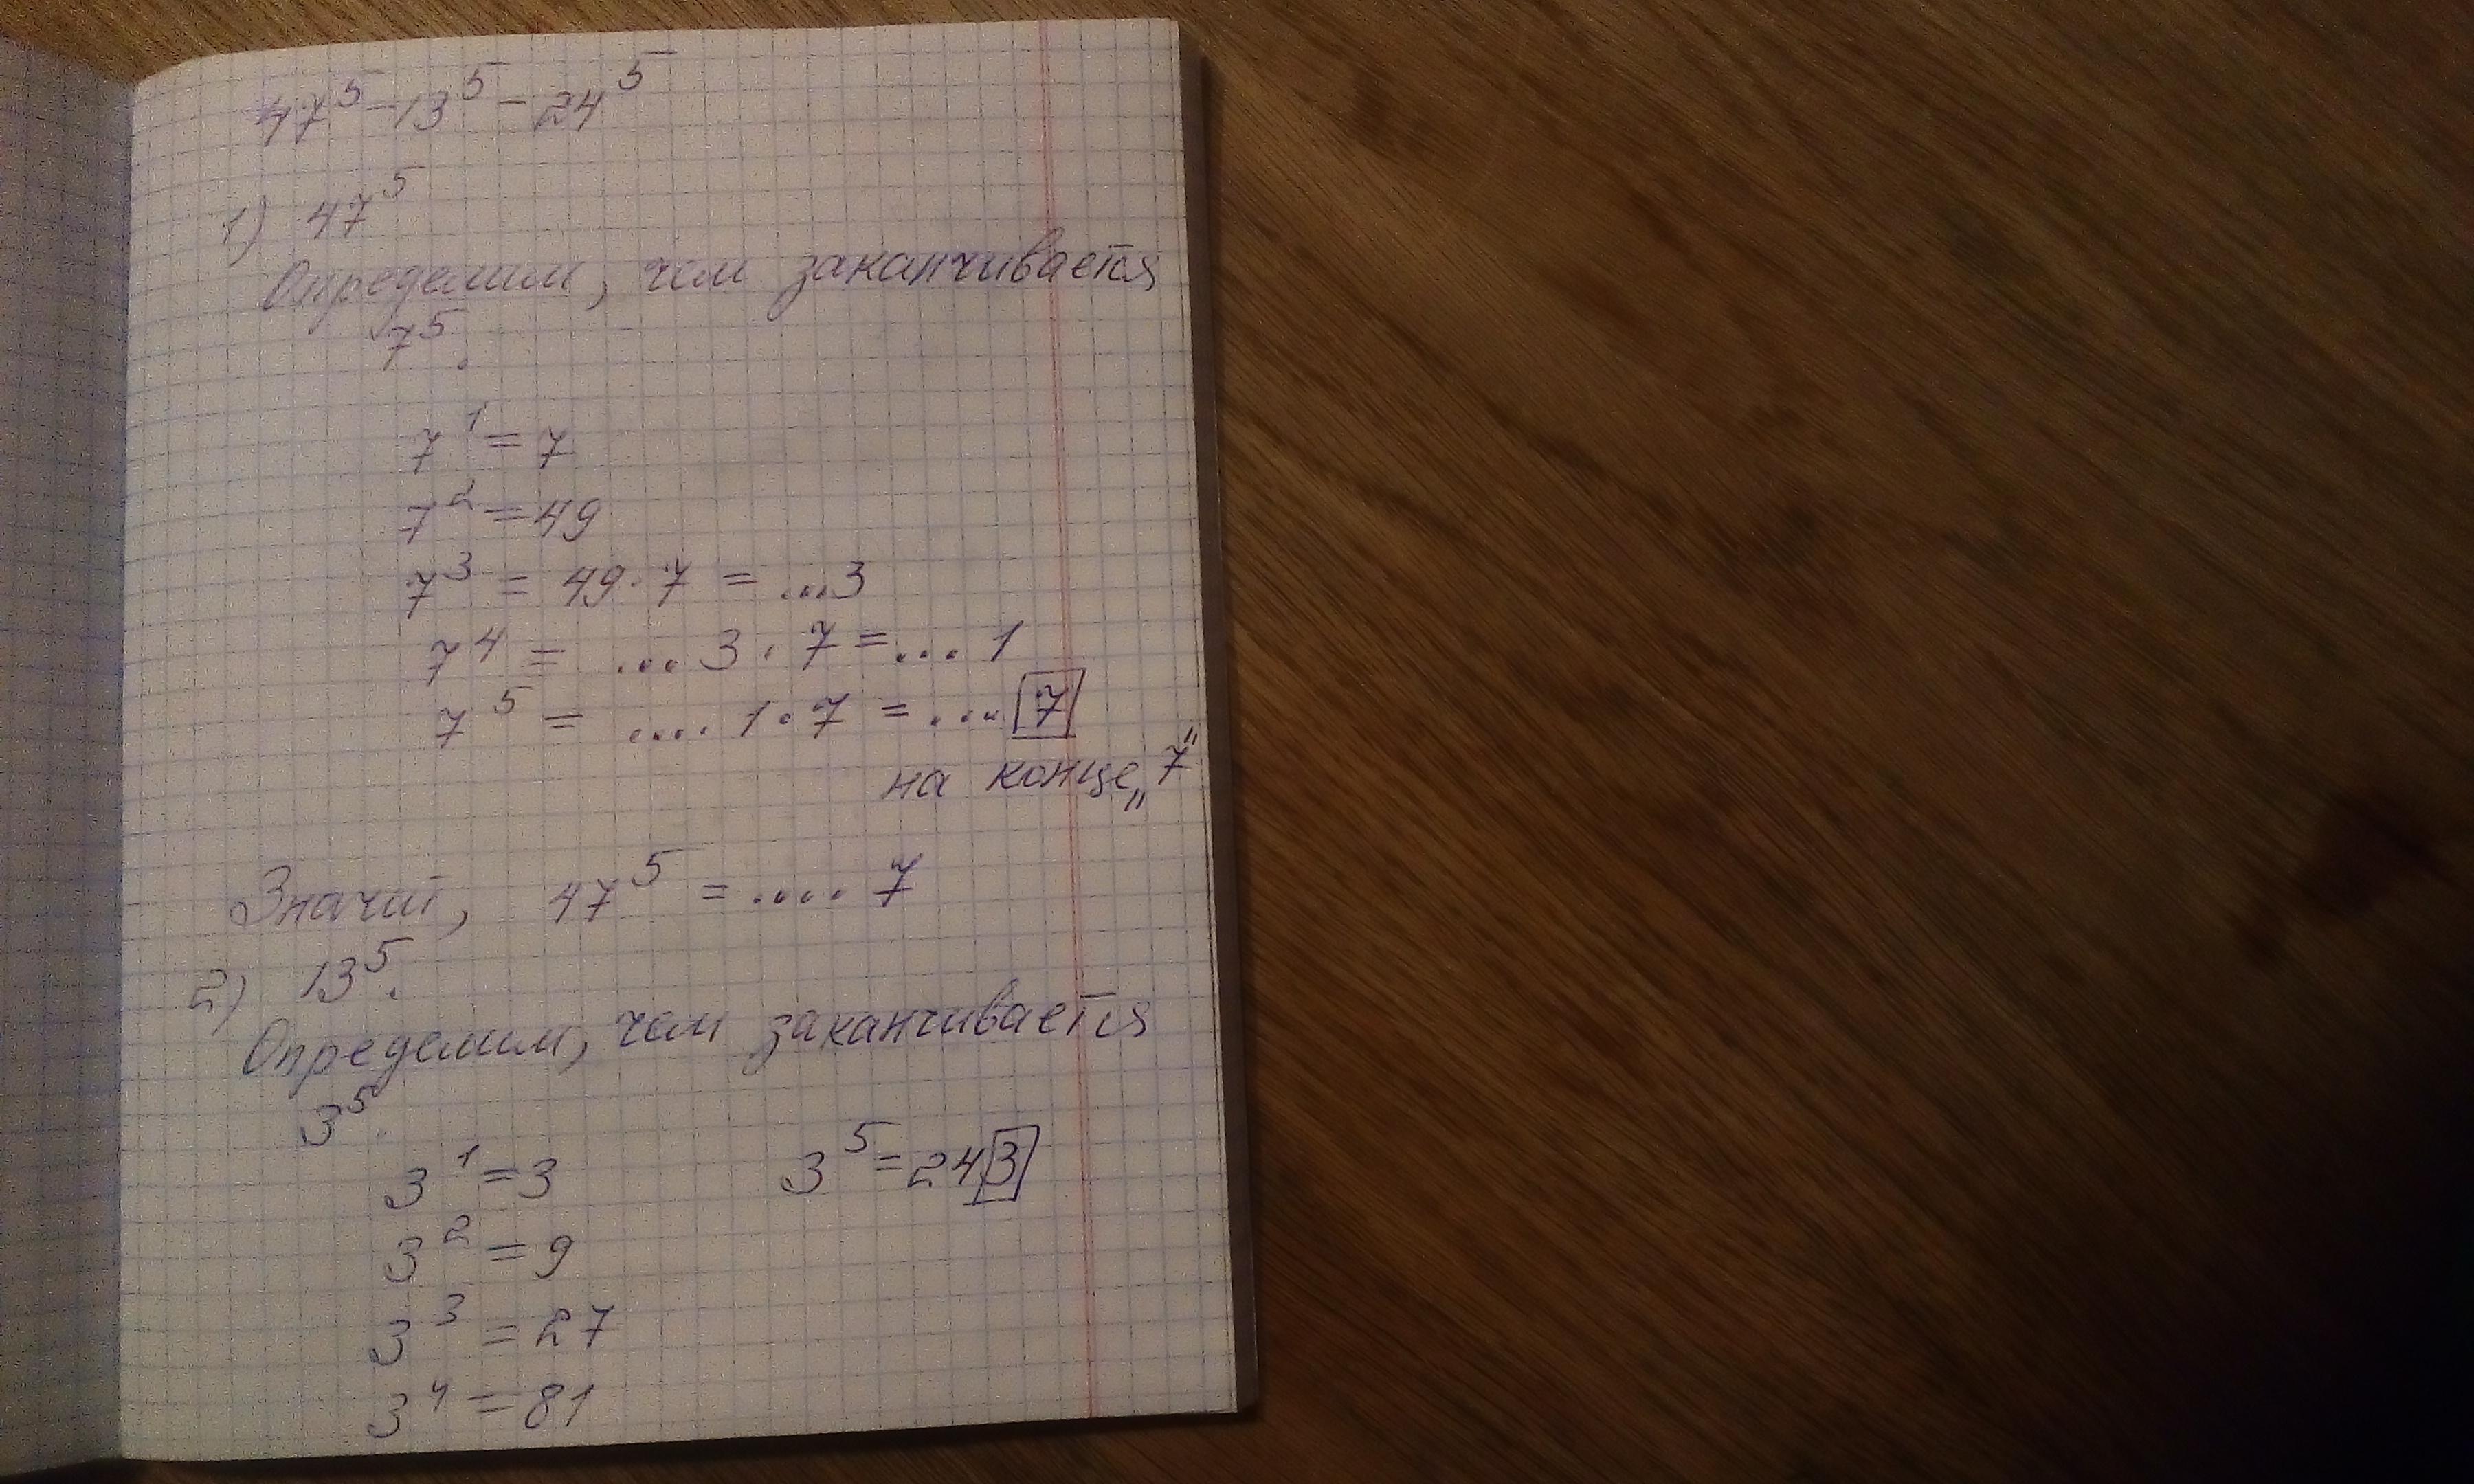 47⁵ – 13⁵ – 24⁵
1) 47⁵
Определим, чем заканчивается
7⁵.
7¹ = 7
7² = 49
7³ = 49 · 7 = ...3
7⁴ = ...3 · 7 = ...1
7⁵ = ....1 · 7 = ...7
на конце „7"
Значит, 47⁵ = ....7
2) 13⁵.
Определим, чем заканчивается
3⁵.
3¹ = 3 3⁵ = 243
3² = 9
3³ = 27
3⁴ = 81